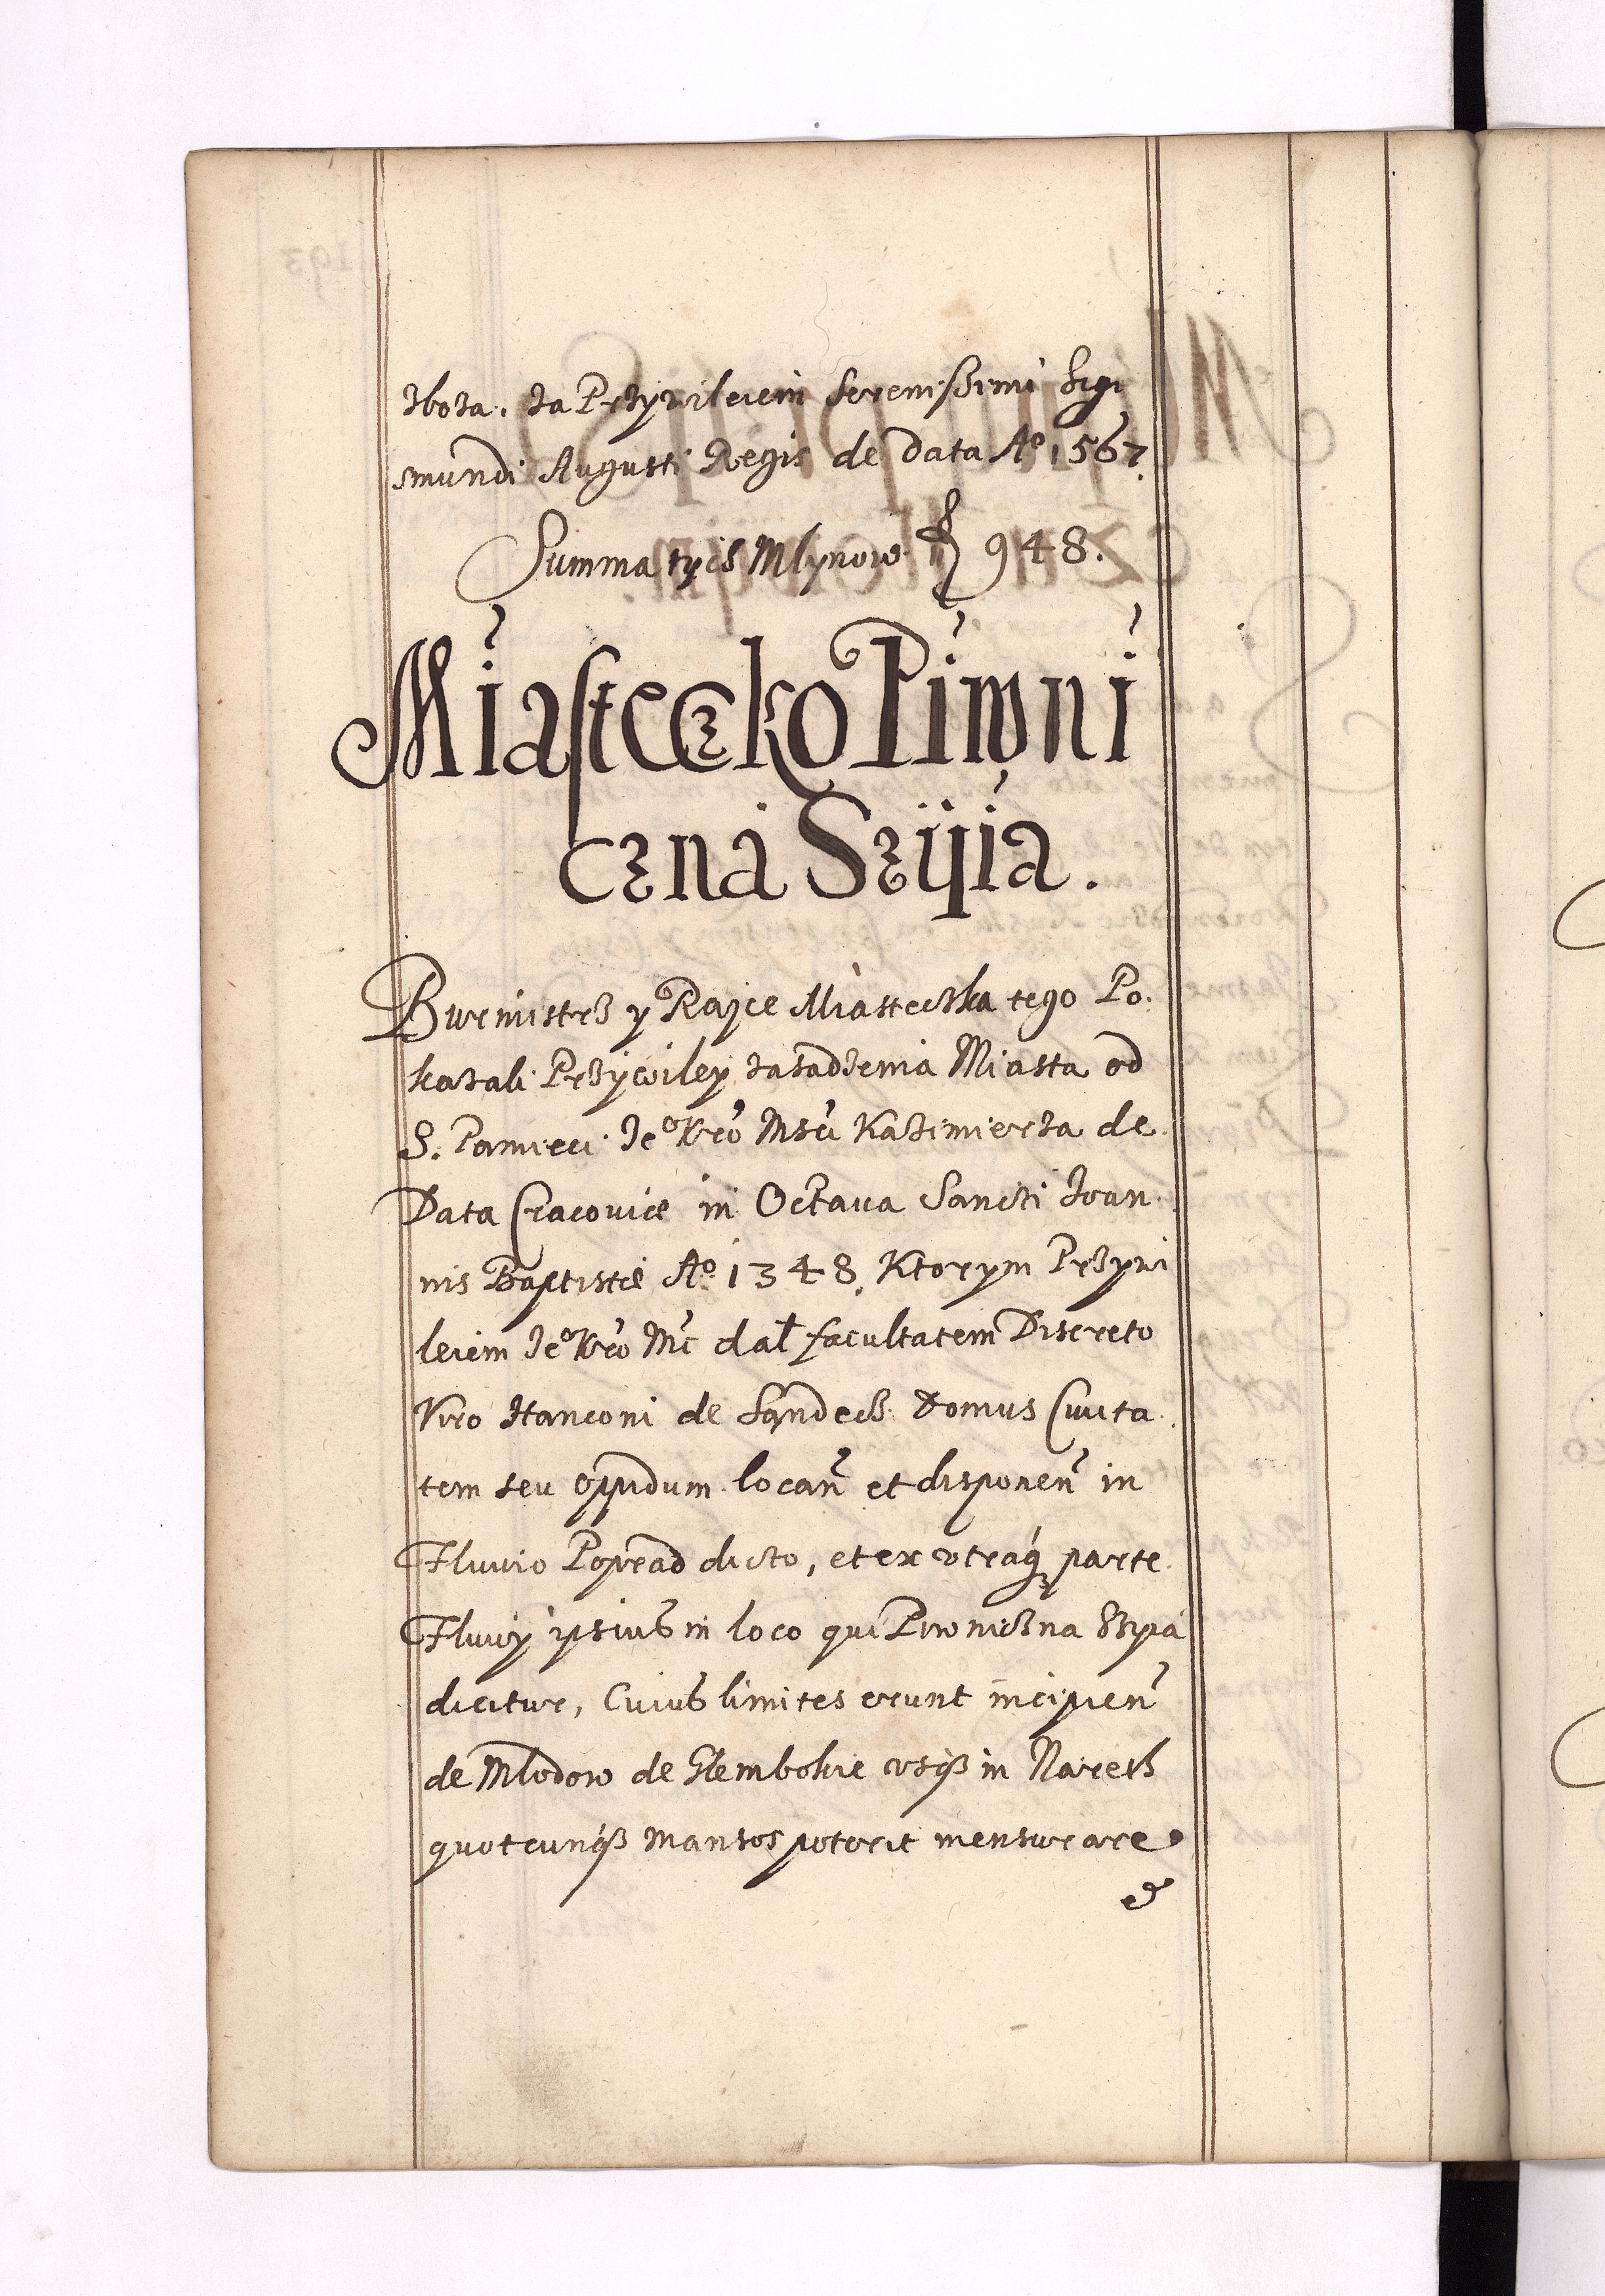 zboza. za Przywileiem Serenissimi Sigi
smundi Augusti Regis de Data Aº 1567.
Summa tych Mlynow fl 948.
Miasteczko Piwni
czna Szyia.
Burmistrz y Rajce Miasteczka tego Po.
kazali Przywiley zasadzenia Miasta od
S. Pamieci Jeº Kro Msci Kazimierza de
Data Cracoviæ in Octava Sancti Ioan
nis Baptistæ Aº 1348. Ktorym Przywi
leiem Jeº Kro Mc dał facultatem Discreto
Viro Hanconi de Sandecz Domus Civita
tem seu oppidum locan et disponen in
Fluvio Poprad dicto, et ex vtraq parte
Fluvij ipsius in loco qui Piwniczna Szyia
dicitur, Cuius limites erunt incipien
de Mlodow de Glembokie vsq in Nareth
quotcunq mansos poterit mensurare
et